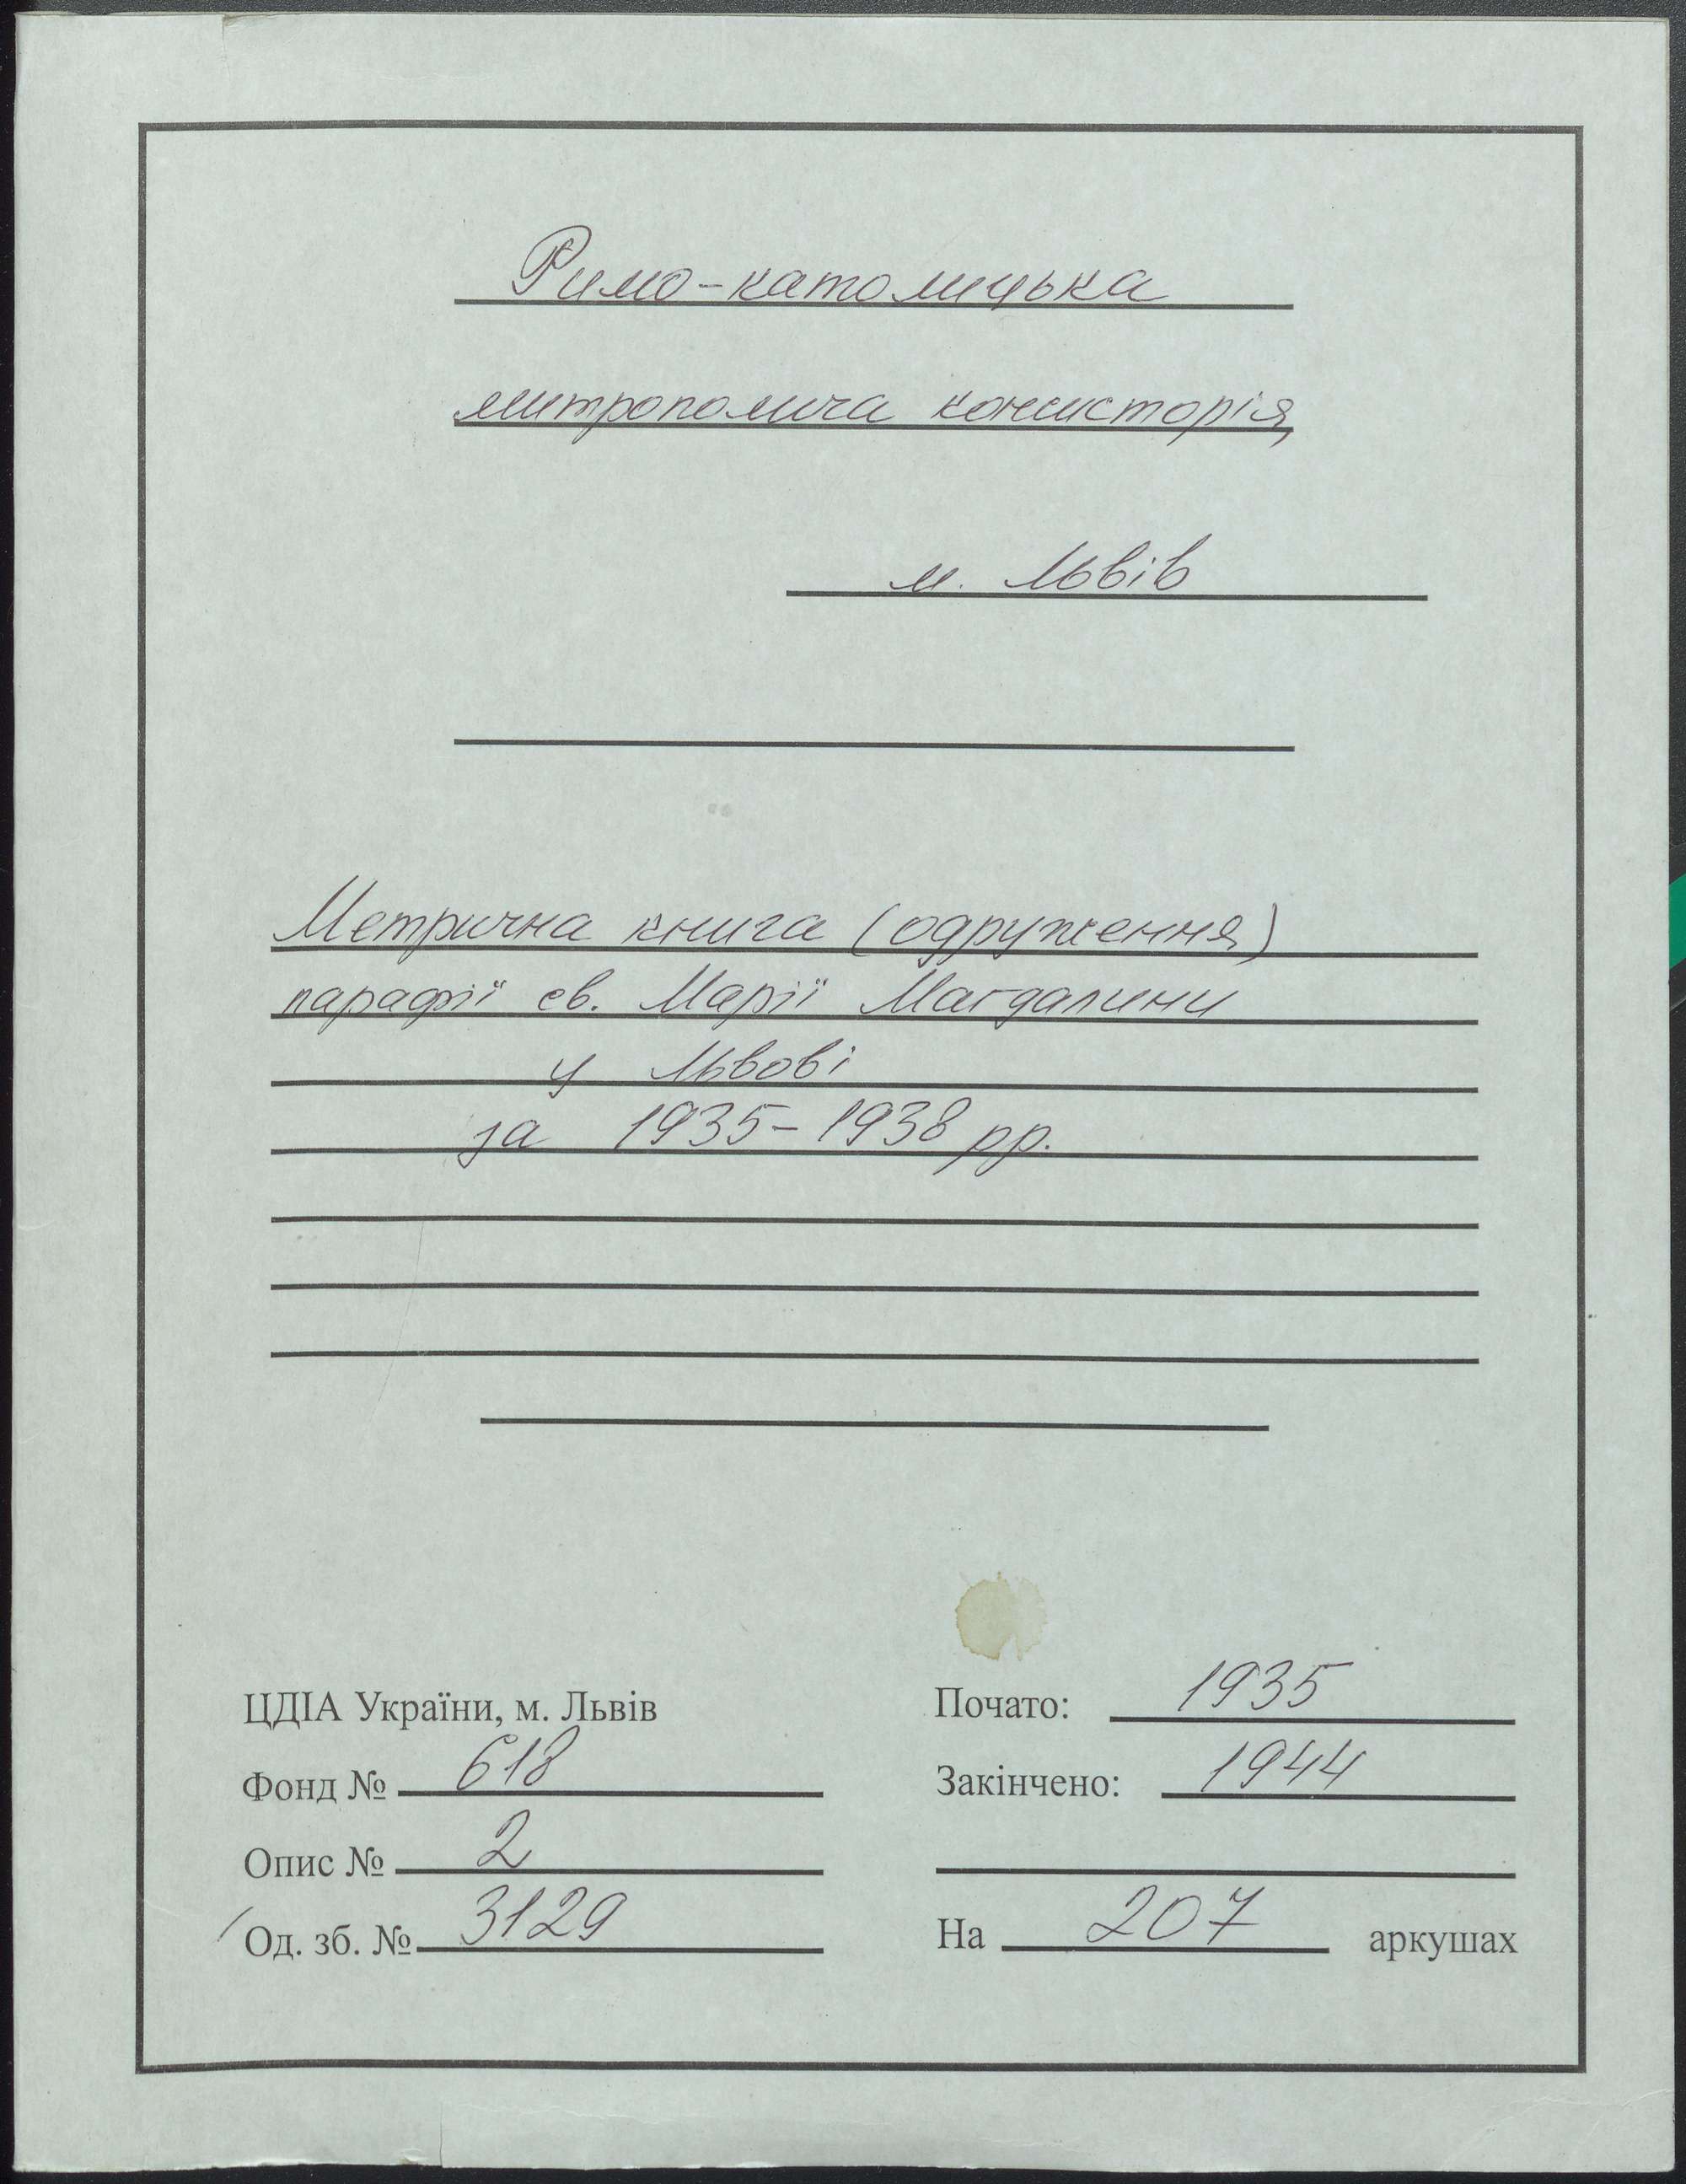 Римо-католицька
митрополича консисторія,
м. Львів
Метрична книга (одруження)
парафії св. Марії Магдалини
у Львові
за 1935-1938 рр.
ЦДІА України, м. Львів
Фонд № 618
Опис № 2
Од. зб. № 3129
Почато: 1935
Закінчено: 1944
На 207 аркушах